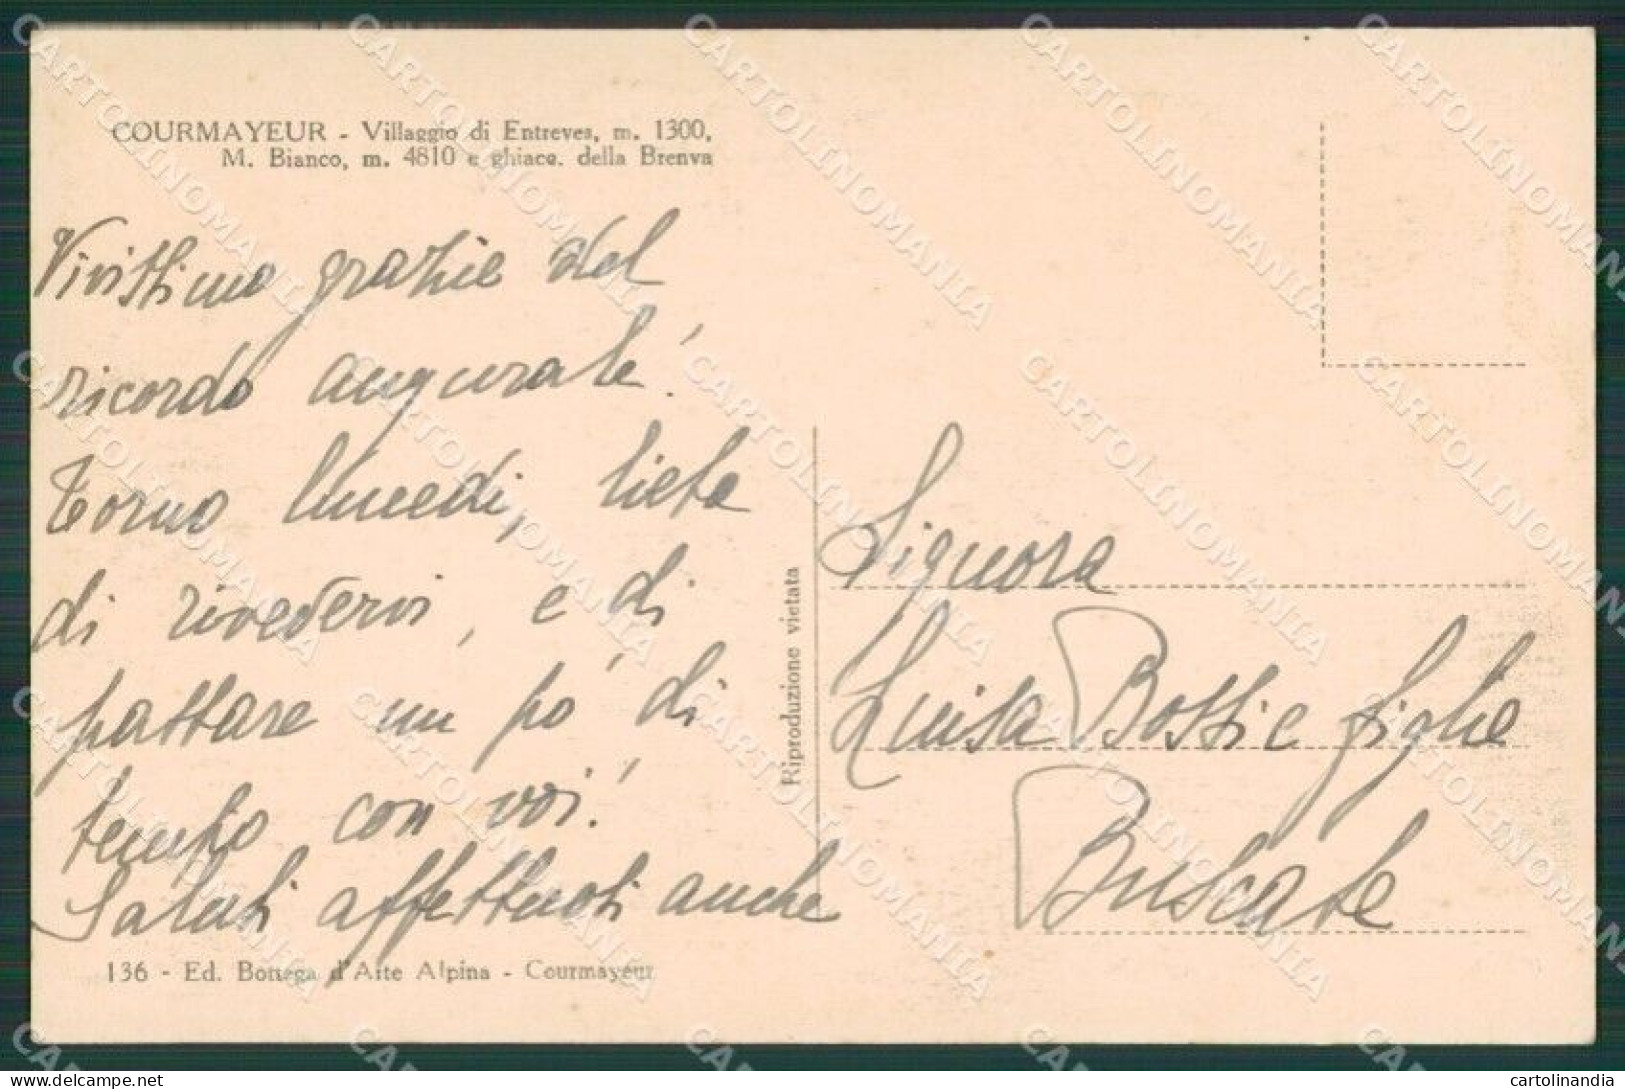 COURMAYEUR - Villaggio di Entreves, m. 1300,
M. Bianco, m. 4810 e ghiacc. della Brenva
Vivissimo grazie del
ricordo augurale!
Torno lunedi, lieta
di rivedervi, e di
passare un po' di
tempo con voi!
Saluti affettuosi anche
136 - Ed. Bottega d'Arte Alpina - Courmayeur
Riproduzione vietata
Signora
Luisa Bossi e figlie
Buscate
CARTOLINOMANIA
delcampe.net
cartolinandia